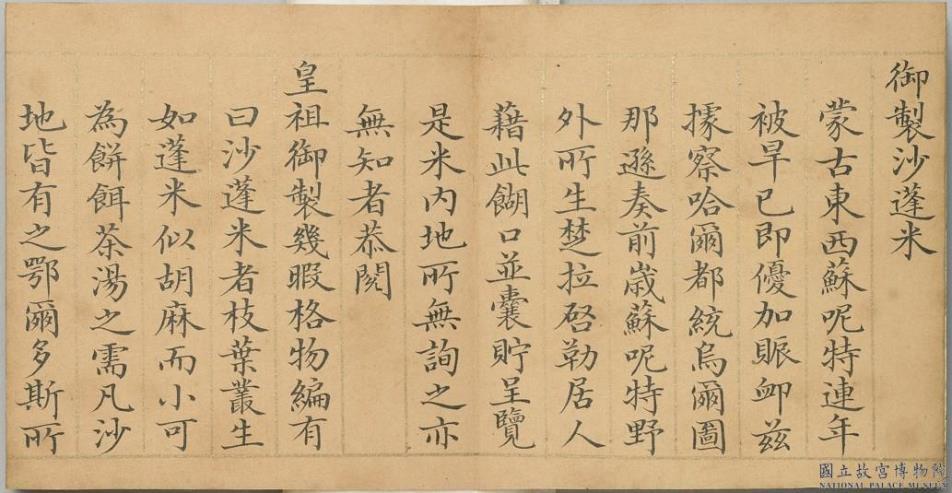 御製沙蓬米
蒙古東西蘇呢特連年
被旱已即優加賑卹茲
據察哈爾都統烏爾圖
那遜奏前歲蘇呢特野
外所生楚拉啓勒居人
藉此餬口並囊貯呈覽
是米內地所無詢之亦
無知者恭閱
皇祖御製幾暇格物編有
曰沙蓬米者枝葉叢生
如蓬米似胡麻而小可
為餅餌茶湯之需凡沙
地皆有之鄂爾多斯所
國立故宮博物院
NATIONAL PALACE MUSEUM